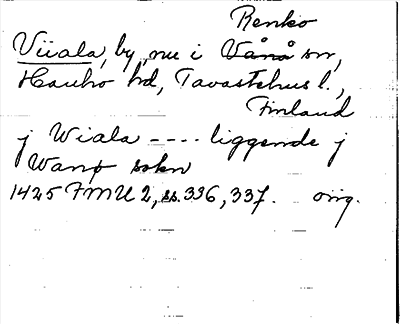 Renko
Viiala, by, nu i Vånå sn,
Hauho hd, Tavastehus l.,
Finland
j Wiala ---- liggende j
Wanø sokn
1425 FMU 2, ss. 336, 337. orig.